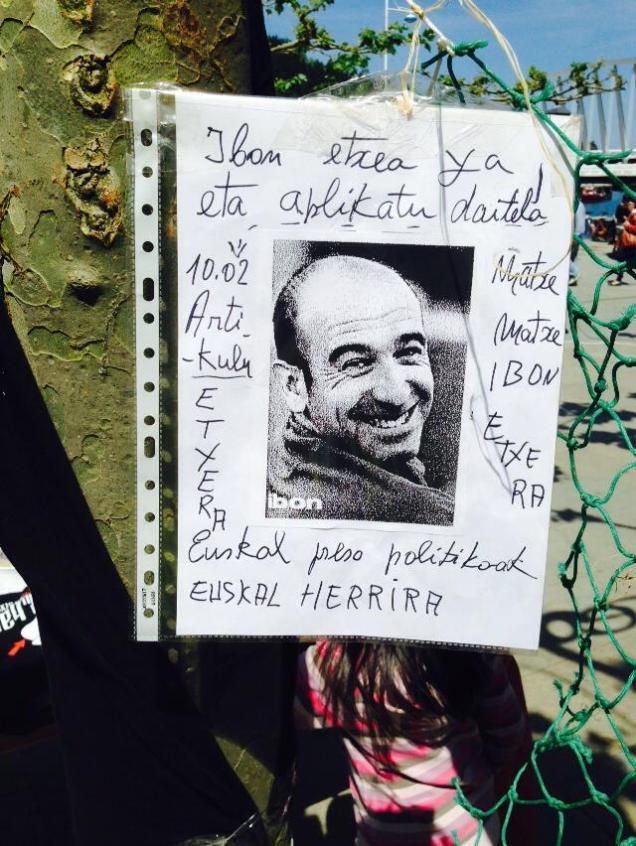 Ibon etxea ya
eta aplikatu daitela!
10.02
Arti-
-kulu
ETXERA
Matxe
Matxe
IBON
ETXE
RA
ibon
Euskal preso politikoak
EUSKAL HERRIRA